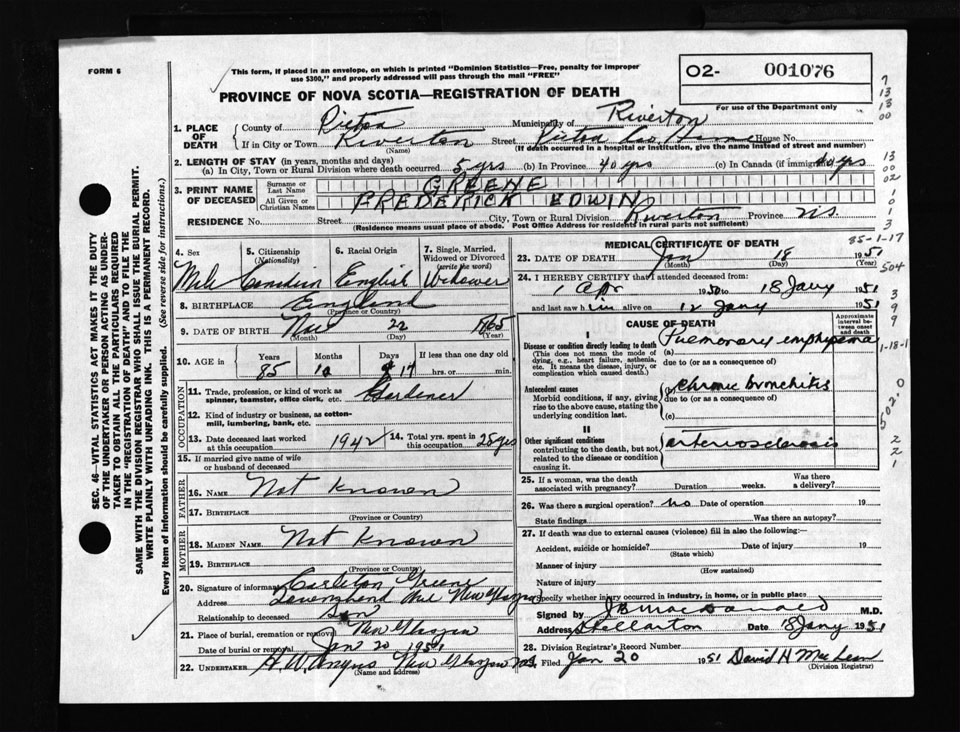 FORM 6
This form, if placed in an envelope, on which is printed "Dominion Statistics—Free, penalty for improper
use $300," and properly addressed will pass through the mail "FREE"
PROVINCE OF NOVA SCOTIA—REGISTRATION OF DEATH
02- 001076
For use of the Department only
1. PLACE OF DEATH
County of Pictou Municipality of Riverton
If in City or Town Riverton Street Pictou Co. Home House No.
(Name) (If death occurred in a hospital or institution, give the name instead of street and number)
2. LENGTH OF STAY (in years, months and days)
(a) In City, Town or Rural Division where death occurred 5 yrs (b) In Province 40 yrs (c) In Canada (if immigrant) 40 yrs
3. PRINT NAME OF DECEASED
Surname or Last Name GREENE
All Given or Christian Names FREDERICK EDWIN
RESIDENCE No. Street City, Town or Rural Division Riverton Province N.S.
(Residence means usual place of abode. Post Office Address for residents in rural parts not sufficient)
4. Sex Male
5. Citizenship (Nationality) Canadian
6. Racial Origin English
7. Single, Married, Widowed or Divorced (write the word) Widower
8. BIRTHPLACE England
(Province or Country)
9. DATE OF BIRTH Nov 22 1865
(Month) (Day) (Year)
10. AGE in Years Months Days If less than one day old
85 hrs. or min.
OCCUPATION
11. Trade, profession, or kind of work as spinner, teamster, office clerk, etc. Gardener
12. Kind of industry or business, as cotton-mill, lumbering, bank, etc.
13. Date deceased last worked at this occupation 1942
14. Total yrs. spent in this occupation 25 yrs
15. If married give name of wife or husband of deceased
FATHER
16. NAME Not Known
17. BIRTHPLACE
(Province or Country)
MOTHER
18. MAIDEN NAME Not Known
19. BIRTHPLACE
(Province or Country)
20. Signature of informant Carleton Greene
Address New Glasgow
Relationship to deceased Son
21. Place of burial, cremation or removal New Glasgow
Date of burial or removal Jan 20 1951
22. UNDERTAKER H W Angus New Glasgow N.S.
(Name and address)
MEDICAL CERTIFICATE OF DEATH
23. DATE OF DEATH Jan 18 1951
(Month) (Day) (Year)
24. I HEREBY CERTIFY that I attended deceased from:
1 Apr 1950 to 18 Jany 1951
and last saw him alive on 12 Jany 1951
CAUSE OF DEATH
Approximate interval between onset and death
I
Disease or condition directly leading to death (a) Pulmonary emphysema
(This does not mean the mode of dying, e.g., heart failure, asthenia, etc. It means the disease, injury, or complication which caused death.)
due to (or as a consequence of)
Antecedent causes (b) Chronic Bronchitis
Morbid conditions, if any, giving rise to the above cause, stating the underlying condition last.
due to (or as a consequence of)
(c)
II
Other significant conditions arteriosclerosis
contributing to the death, but not related to the disease or condition causing it.
25. If a woman, was the death associated with pregnancy? Duration weeks. Was there a delivery?
26. Was there a surgical operation? no Date of operation 19
State findings Was there an autopsy?
27. If death was due to external causes (violence) fill in also the following:—
Accident, suicide or homicide? Date of injury 19
(State which)
Manner of injury
(How sustained)
Nature of injury
Specify whether injury occurred in industry, in home, or in public place
Signed by J B MacDonald M.D.
Address Stellarton Date 18 Jany 1951
28. Division Registrar's Record Number
Filed Jan 20 1951 David H MacLean
(Division Registrar)
SEC. 46—VITAL STATISTICS ACT MAKES IT THE DUTY
OF THE UNDERTAKER OR PERSON ACTING AS UNDER-
TAKER TO OBTAIN ALL THE PARTICULARS REQUIRED
IN THE "REGISTRATION OF DEATH" AND TO FILE THE
SAME WITH THE DIVISION REGISTRAR WHO SHALL ISSUE THE BURIAL PERMIT.
WRITE PLAINLY WITH UNFADING INK. THIS IS A PERMANENT RECORD.
Every item of information should be carefully supplied. (See reverse side for instructions.)
7
13
13
00
13
00
02
1
0
1
3
85-1-17
504
3
9
9
1-18-1
502.0
2
2
1